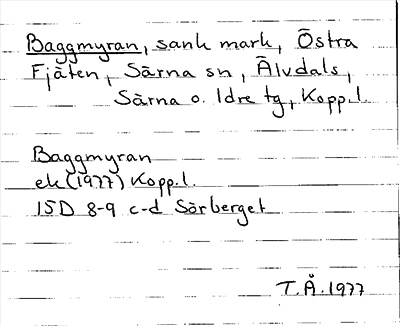 Baggmyran, sank mark, Östra
Fjäten, Särna sn, Älvdals,
Särna o. Idre tg, Kopp.l.
Baggmyran
ek (1977) Kopp.l.
15D 8-9 c-d Sörberget
T.Å.1977